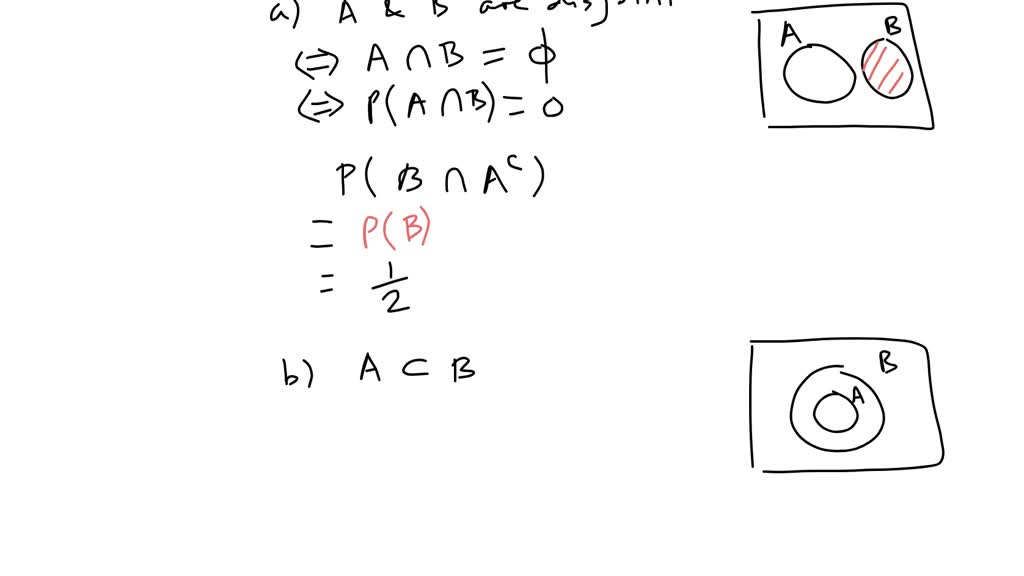 a) A & B are disjoint
⟺ A ∩ B = ϕ
⟺ P(A ∩ B) = 0
P( B ∩ Aᶜ )
= P(B)
= 1/2
b) A ⊂ B
A B
B
A